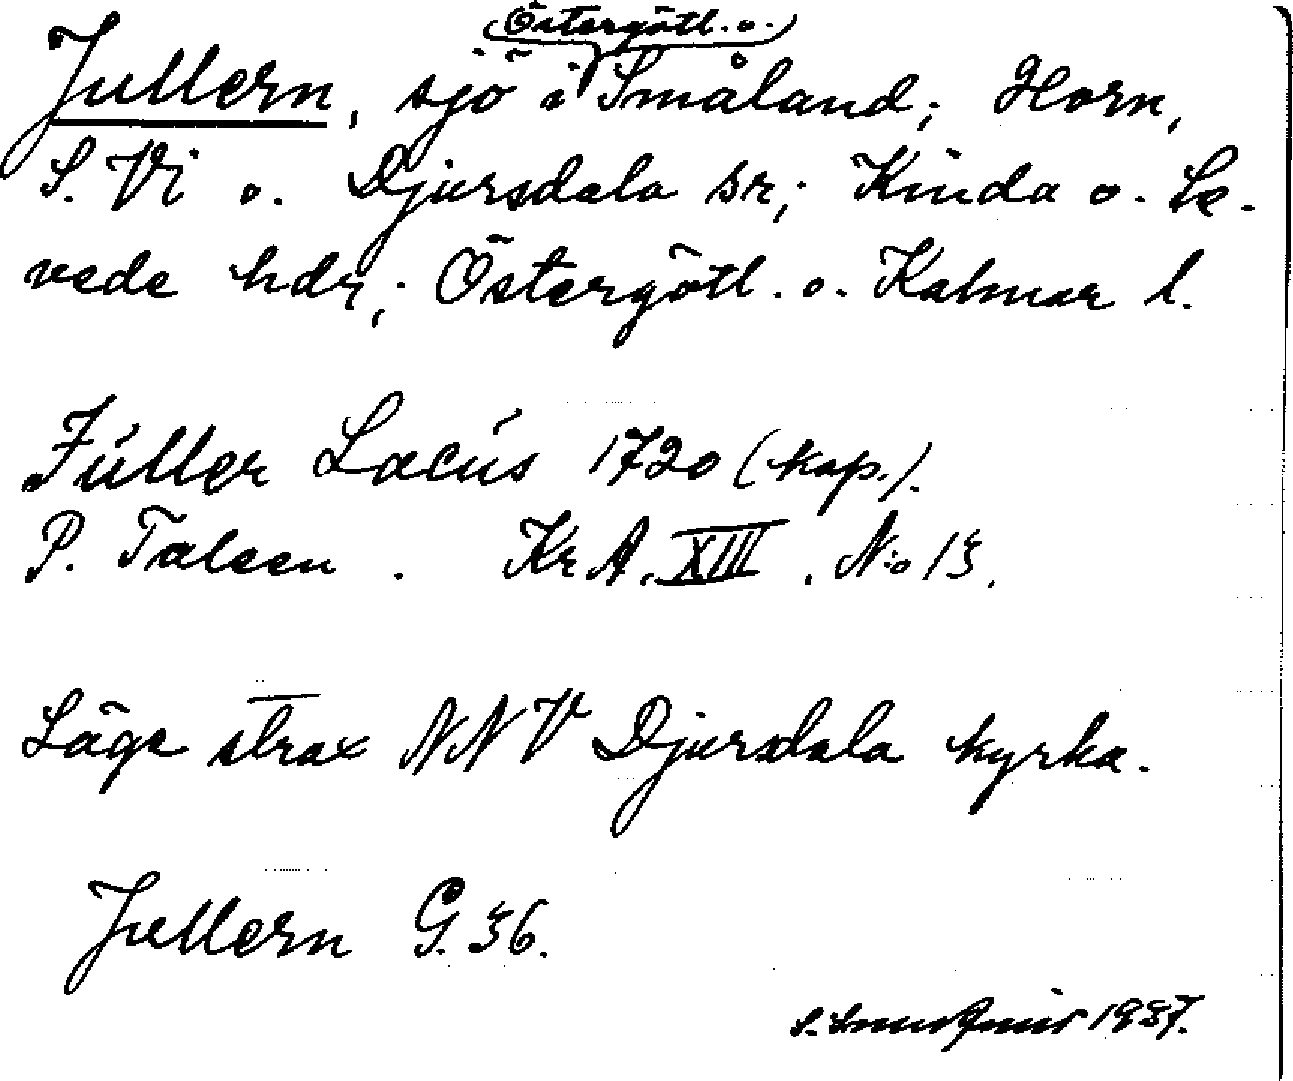 (Östergötl. o.)
Jullern, sjö i Småland; Horn,
S. Vi o. Djursdala sr; Kinda o. Se-
vede hdr; Östergötl. o. Kalmar l.
Júller Lacús 1720 (kop.).
P. Taleen. Kr A. XIII. N:o 13.
Läge strax NNV Djursdala kyrka.
Jullern G. 36.
1937.